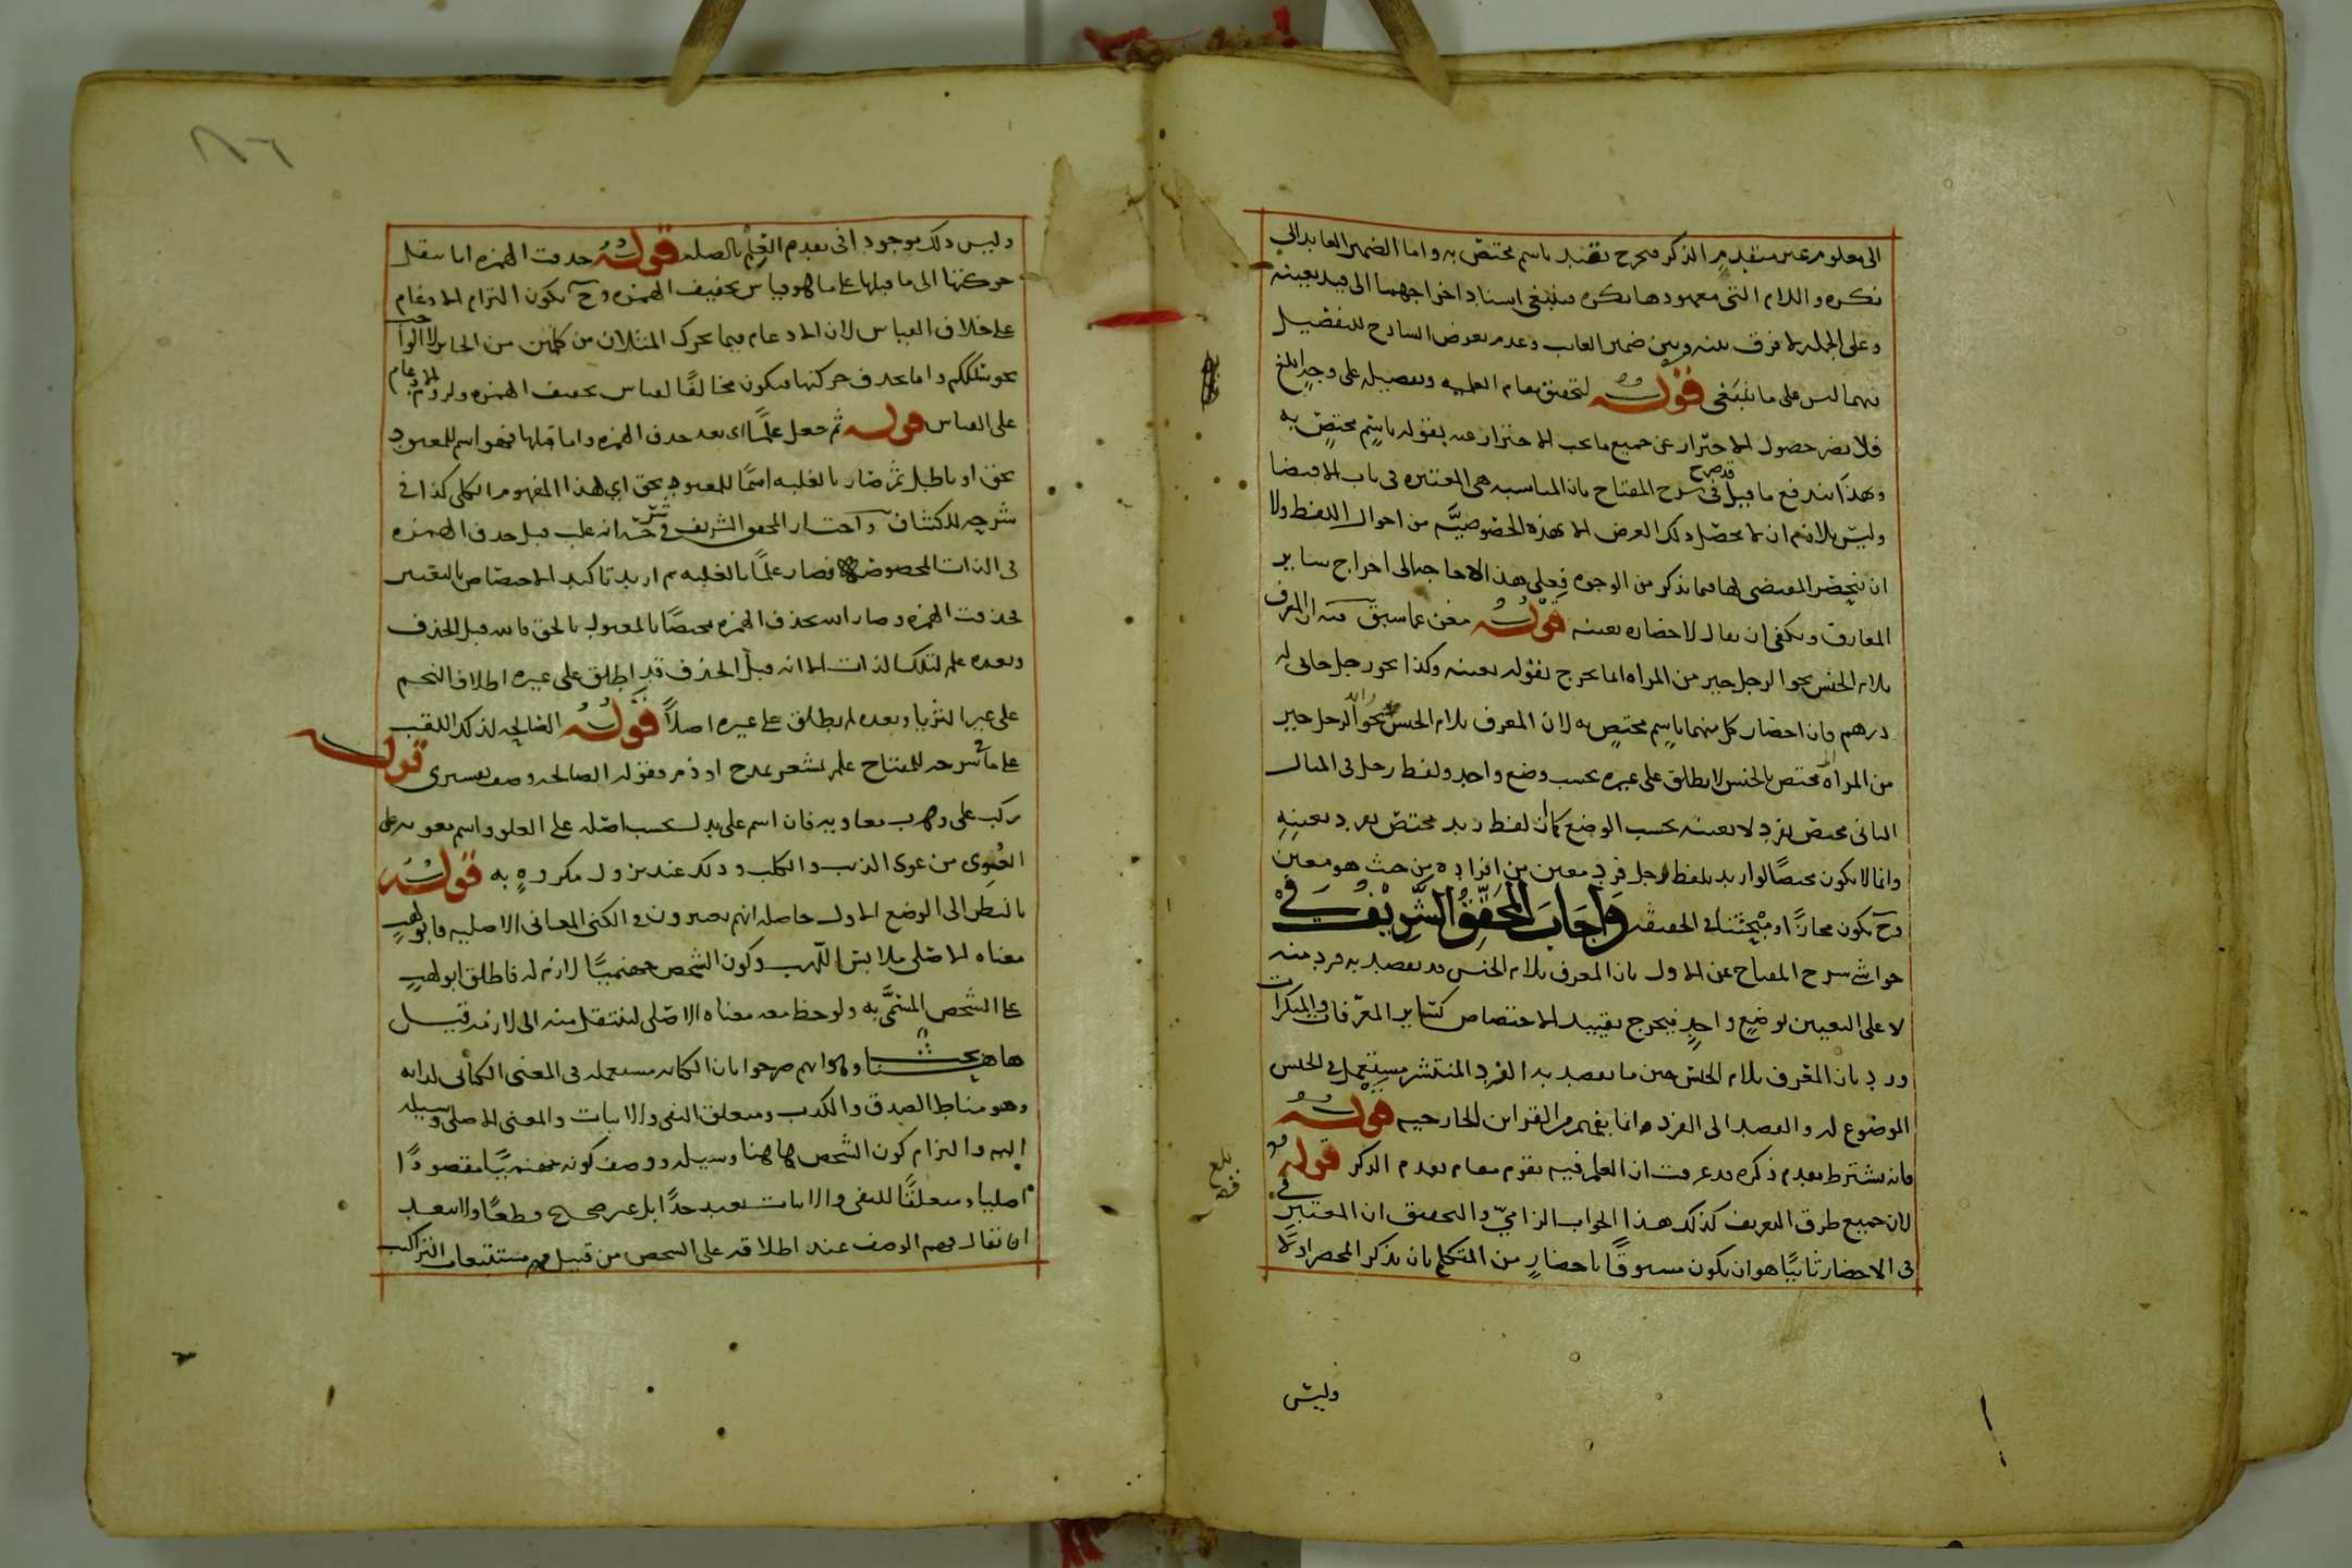 الى معلوم غير متقدم الذكر فيخرج بقيد باسم مختص به واما الضمير العايد الى
نكرة واللام التى معهودها نكرة فينبغى اسناد اخراجهما الى قيد بعينه
وعلى الجملة لا فرق بينه وبين ضمير الغايب وعدم تعرض الشارح للتفصيل
فيهما ليس على ما ينبغى قوله لتحقيق مقام العلمية وتفصيله على وجه ابلغ
فلا يضر حصول الاحتراز عن جميع ما يجب الاحتراز عنه بقوله باسم مختص به
وبهذا يندفع ما قيل قد صرح فى شرح المفتاح بان المناسبة هى المعتبرة فى باب الاقتضا
وليس بلازم ان لا يحصل ذلك الغرض الا بهذه الخصوصية من احوال اللفظ ولا
ان ينحصر المقتضى لها فيما يذكر من الوجوه فعلى هذا لا حاجة الى اخراج ساير
المعارف ويكفى ان يقال لاحضاره بعينه قوله مغن عما سبق فيه ان المعرف
بلام الجنس نحو الرجل خير من المراة انما يخرج بقوله بعينه وكذا نحو رجل جانى له
درهم فان احضار كل منهما باسم مختص به لان المعرف بلام الجنس نحو الرجل خير
من المراة مختص بالجنس لا يطلق على غيره بحسب وضع واحد ولفظ رجل فى المثال
الثانى مختص بفرد لا بعينه بحسب الوضع كما ان لفظ زيد مختص بفرد بعينه
وانما لا يكون مختصا لو اريد بلفظ رجل فرد معين من افراده من حيث هو معين
وح يكون مجازا او مبحثنا فى الحقيقة واجاب المحقق الشريف فى
حواشى شرح المفتاح عن الاول بان المعرف بلام الجنس قد يقصد به فرد منه
لا على التعيين بوضع واحد فيخرج بقييد الاختصاص كساير المعرفات والمنكرات
ورد بان المعرف بلام الجنس حين ما يقصد به الفرد المنتشر مستعمل فى الجنس
الموضوع له والقصد الى الفرد انما يفهم من القراين الخارجية قوله
فانه يشترط تقدم ذكره قد عرفت ان العلم فيه يقوم مقام تقدم الذكر قوله
لان جميع طرق التعريف كذلك هذا الجواب الزامى والتحقيق ان المعتبر فى
فى الاحضار ثانيا هو ان يكون مسبوقا باحضار من المتكلم بان يذكر المحضر اولا
وليس
بلغ
وليس ذلك موجودا فى تقدم العلم بالصلة قوله حذفت الهمزة اما بنقل
حركتها الى ما قبلها على ما هو قياس تخفيف الهمزة وح يكون التزام الادغام
على خلاف القياس لان الادغام فيما تحرك المثلان من كلمتين من الجايز لا الواجب
نحو سلككم واما بحذف حركتها فيكون مخالفا لقياس تخفيف الهمزة ولزوم الادغام
على القياس قوله ثم جعل علما اى بعد حذف الهمزة واما قبلها فهو اسم للمعبود
بحق او باطل ثم صار بالغلبة اسما للمعبود بحق اى لهذا المفهوم الكلى كذا فى
شرحه للكشاف واختار المحقق الشريف فى انه غلب قبل حذف الهمزة
فى الذات المخصوصة فصار علما بالغلبة ثم اريد تاكيد الاختصاص بالتغيير
فحذفت الهمزة وصار الله بحذف الهمزة مختصا بالمعبود بالحق فالله قبل الحذف
وبعده علم لتلك الذات الا انه قبل الحذف قد اطلق على غيره اطلاق النجم
على غير الثريا وبعده لم يطلق على غيره اصلا قوله الصالحة لذلك اللقب
على ما فى شرحه للمفتاح علم يشعر بمدح او ذم وقوله الصالحة وصف تفسيرى قوله
ركب على وهرب معاوية فان اسم على يدل بحسب اصله على العلو واسم معوية على
العوى من عوى الذيب والكلب وذلك عند نزول مكروه به قوله
بالنظر الى الوضع الاول حاصله انهم يعتبرون فى الكنى المعانى الاصلية فابو لهب
معناه الاصلى ملابس اللهب وكون الشخص جهنميا لازم له فاطلق ابو لهب
على الشخص المسمى به ولوحظ معه معناه الاصلى لينتقل منه الى لازمه قيل
هاهنا بحث وهو انهم صرحوا بان الكناية مستعملة فى المعنى الكنائى لذاته
وهو مناط الصدق والكذب ومتعلق النفى والاثبات والمعنى الاصلى وسيلة
اليه والتزام كون الشخص هاهنا وسيلة ووصف كونه جهنميا مقصودا
اصليا ومتعلقا للنفى والاثبات بعيد جدا بل غير صحيح قطعا ولا يبعد
ان يقال فهم الوصف عند اطلاقه على الشخص من قبيل مستتبعات التراكيب